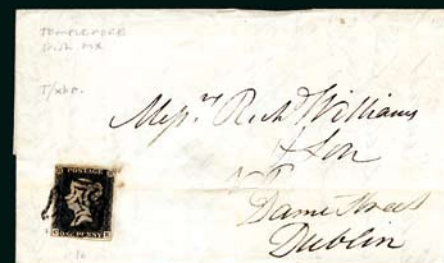 TEMPLEMORE
Irish MX
Messrs Richd Williams
& Son
Dame Street
Dublin
POSTAGE
ONE PENNY